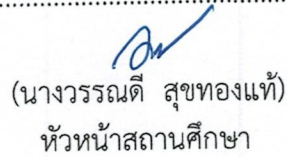 (นางวรรณดี สุขทองแท้)
หัวหน้าสถานศึกษา